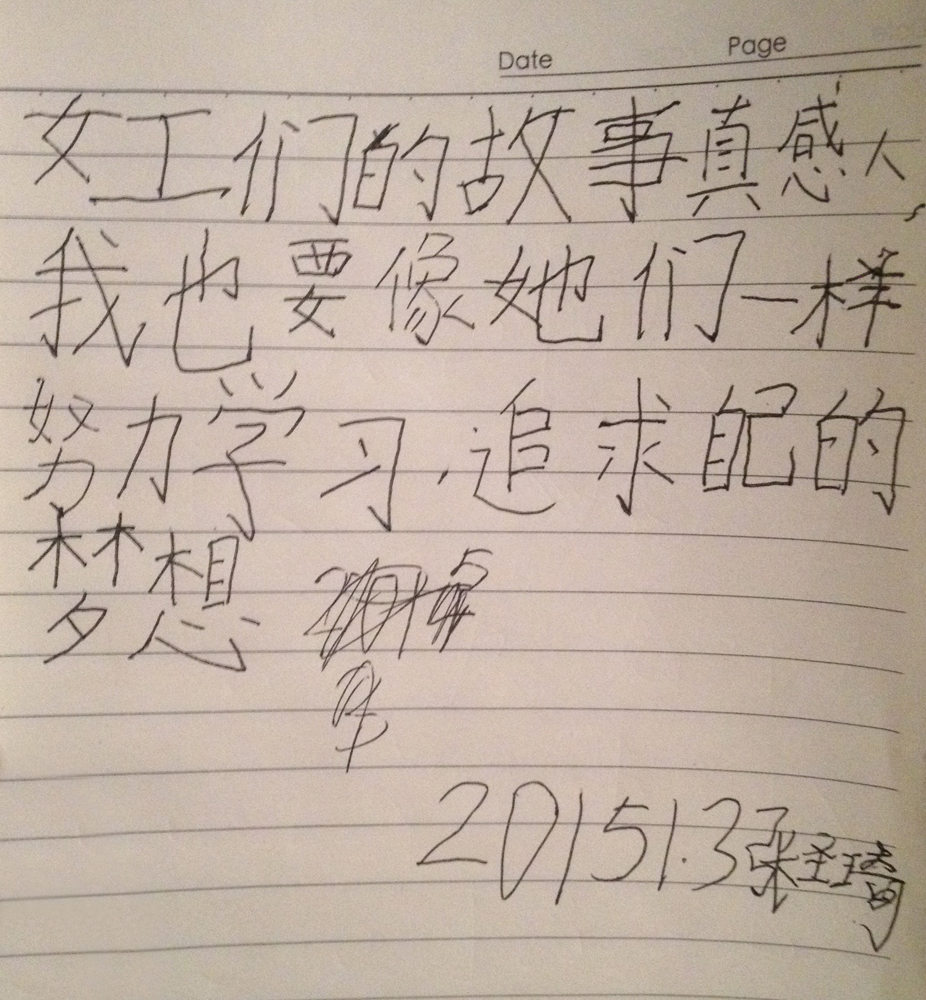 Date Page
女工们的故事真感人,
我也要像她们一样
努力学习,追求自己的
梦想
2015.1.3张圣琦